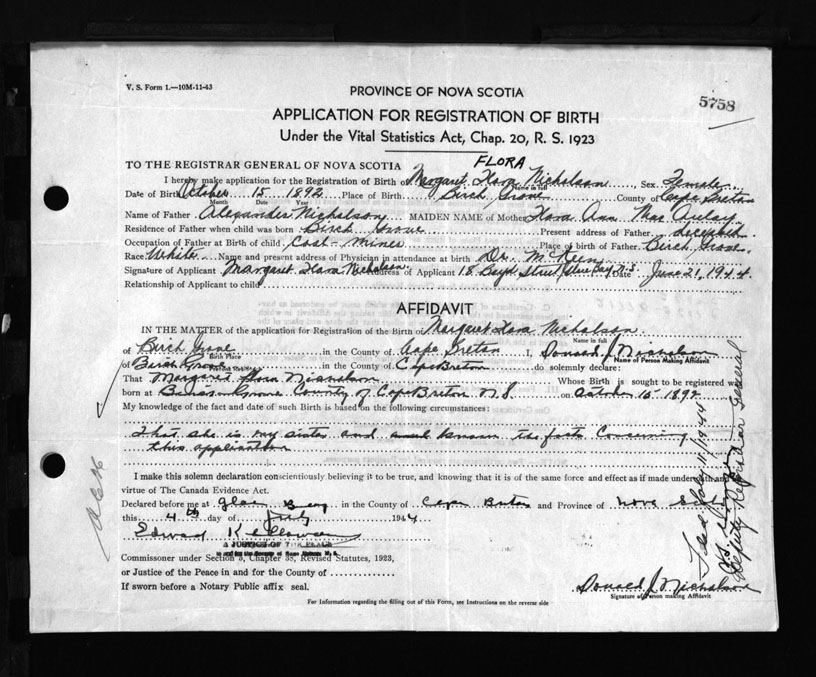 V. S. Form 1.—10M-11-43
5758
PROVINCE OF NOVA SCOTIA
APPLICATION FOR REGISTRATION OF BIRTH
Under the Vital Statistics Act, Chap. 20, R. S. 1923
FLORA
TO THE REGISTRAR GENERAL OF NOVA SCOTIA
I hereby make application for the Registration of Birth of Margaret Flora Nicholson Sex Female
Name in full
Date of Birth October 15 1892 Place of Birth Birch Grove County of Cape Breton
Month Date Year
Name of Father Alexander Nicholson MAIDEN NAME of Mother Flora Ann MacAulay
Residence of Father when child was born Birch Grove Present address of Father deceased
Occupation of Father at Birth of child Coal-Miner Place of birth of Father Birch Grove
Race White Name and present address of Physician in attendance at birth Dr. McKeen
Signature of Applicant Margaret Flora Nicholson Address of Applicant 18 Boyd Street Glace Bay N.S. Date June 21, 1944
Relationship of Applicant to child
AFFIDAVIT
IN THE MATTER of the application for Registration of the Birth of Margaret Flora Nicholson
Name in full
of Birch Grove in the County of Cape Breton I, Donald J Nicholson
Birth Place Name of Person Making Affidavit
of Birch Grove in the County of Cape Breton do solemnly declare:
That Margaret Flora Nicholson Whose Birth is sought to be registered was
born at Birch Grove County of Cape Breton N S. on October 15 1892
My knowledge of the fact and date of such Birth is based on the following circumstances:
That she is my sister and I know the facts concerning
this application
I make this solemn declaration conscientiously believing it to be true, and knowing that it is of the same force and effect as if made under oath and
virtue of The Canada Evidence Act.
Declared before me at Glace Bay in the County of Cape Breton and Province of Nova Scotia
this 4th day of July 1944
Edward K
A JUSTICE OF THE PEACE
in and for the County of Cape Breton N. S.
Commissioner under Section 5, Chapter 38, Revised Statutes, 1923,
or Justice of the Peace in and for the County of
If sworn before a Notary Public affix seal.
Donald J. Nicholson
Signature of Person making Affidavit
For Information regarding the filling out of this Form, see Instructions on the reverse side
July 11/1944
Deputy Registrar General